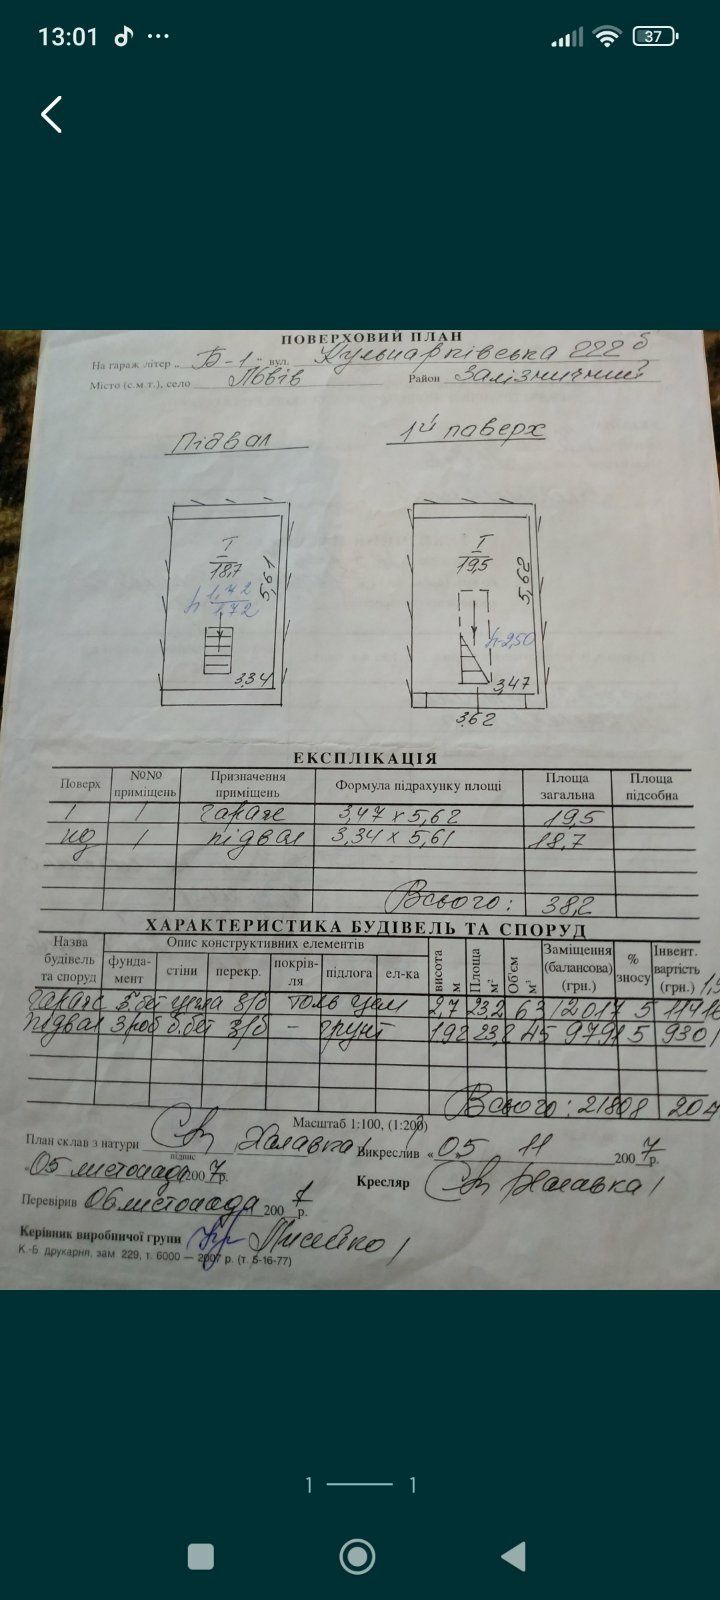 13:01
37
ПОВЕРХОВИЙ ПЛАН
На гараж літер „ Б-1 " вул. Кульпарківська 222 б
Місто (с.м т.), село Львів Район Залізничний
Підвал 1й паверх
I I
18,7 19,5
5,61 5,62
h 1,72
1,72
h-2,50
3.34 3,47
3.62
ЕКСПЛІКАЦІЯ
Поверх №№ приміщень Призначення приміщень Формула підрахунку площі Площа загальна Площа підсобна
1 1 гараж 3,47 х 5,62 19,5
пд 1 підвал 3,34 х 5,61 18,7
Всього: 38,2
ХАРАКТЕРИСТИКА БУДІВЕЛЬ ТА СПОРУД
Назва будівель та споруд Опис конструктивних елементів висота м Площа м² Об'єм м³ Заміщення (балансова) (грн.) % зносу Інвент. вартість (грн.)
фунда-мент стіни перекр. покрів-ля підлога ел-ка
гараж з/б толь цем 2,7 23,2 63 12017 5
підвал б.бет з/б - грунт 1.92 23,2 45 9791 5 9301
Всього: 21808
Масштаб 1:100, (1:200)
План склав з натури Халавка Викреслив « 05 11 2007 р.
підпис
«05 листопада 2007 р. Кресляр Халавка
Перевірив 06 листопада 2007 р.
Керівник виробничої групи
К.-Б. друкарня, зам 229, т. 6000 — 2007 р. (т. 5-16-77)
1 1